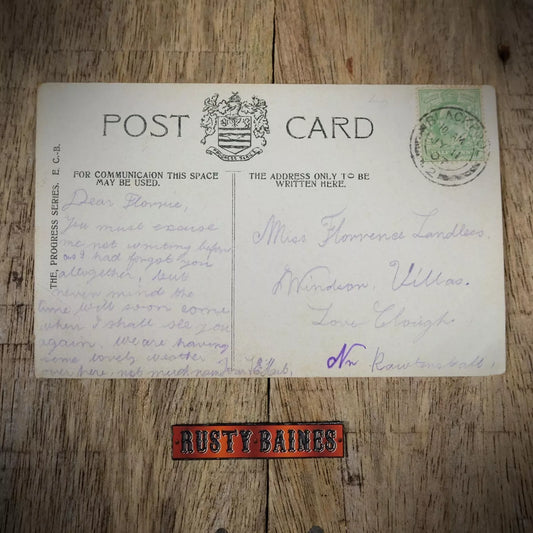 POST CARD
THE PROGRESS SERIES. E. C.-B.
FOR COMMUNICAION THIS SPACE
MAY BE USED.
Dear Florrie,
You must excuse
me not writing before
as I had forgot you
altogether, but
never mind the
time will soon come
when I shall see you
again. We are having
some lovely weather
over here, not much
THE ADDRESS ONLY TO BE
WRITTEN HERE.
Miss Florrence Landless.
Windsor, Villas.
Love Clough.
Nr Rawtenstall,
RUSTY·BAINES